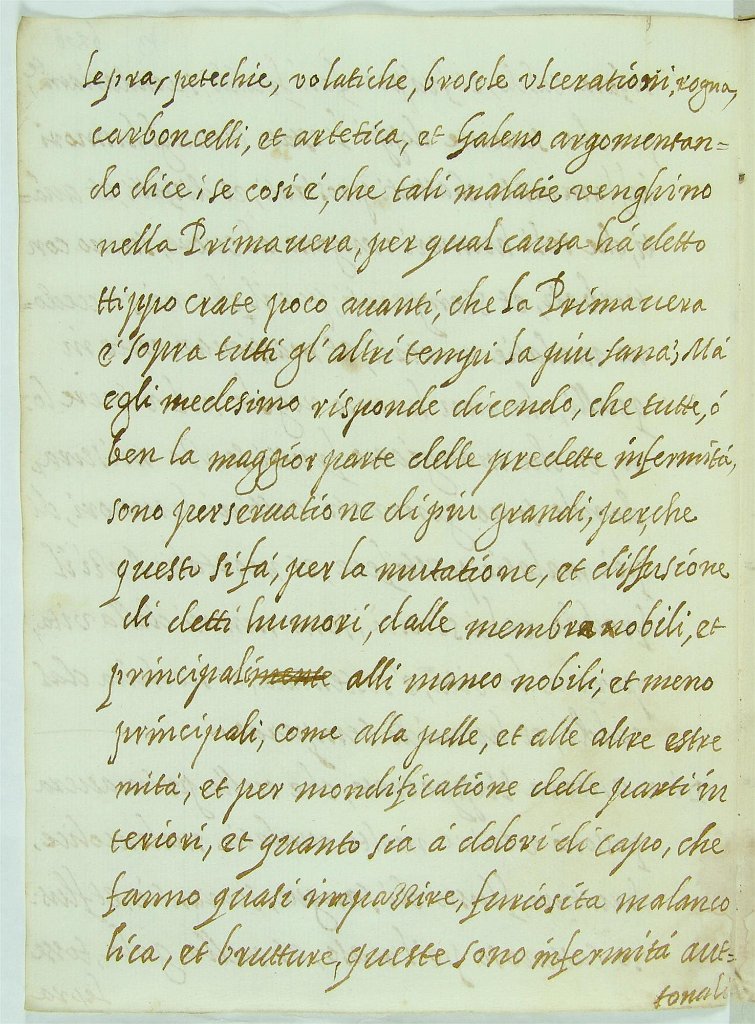 lepra, petechie, volatiche, brosole ulcerationi, rogna,
carboncelli, et artetica, et Galeno argomentan=
do dice; se cosi è, che tali malatie venghino
nella Primauera, per qual causa há detto
Hippocrate poco auanti, che la Primauera
è sopra tutti gl'altri tempi la piu sana; Má
egli medesimo risponde dicendo, che tutte, ó
ben la maggior parte delle predette infermitá,
sono perseruatione di piu grandi, perche
questo si fá, per la mutatione, et diffusione
di detti humori, dalle membra nobili, et
principali alli manco nobili, et meno
principali, come alla pelle, et alle altre estre
mitá, et per mondificatione delle parti in
teriori, et quanto sia á dolori di capo, che
fanno quasi impazzire, furiosita malanco
lica, et brutture, queste sono infermitá aut=
tonali